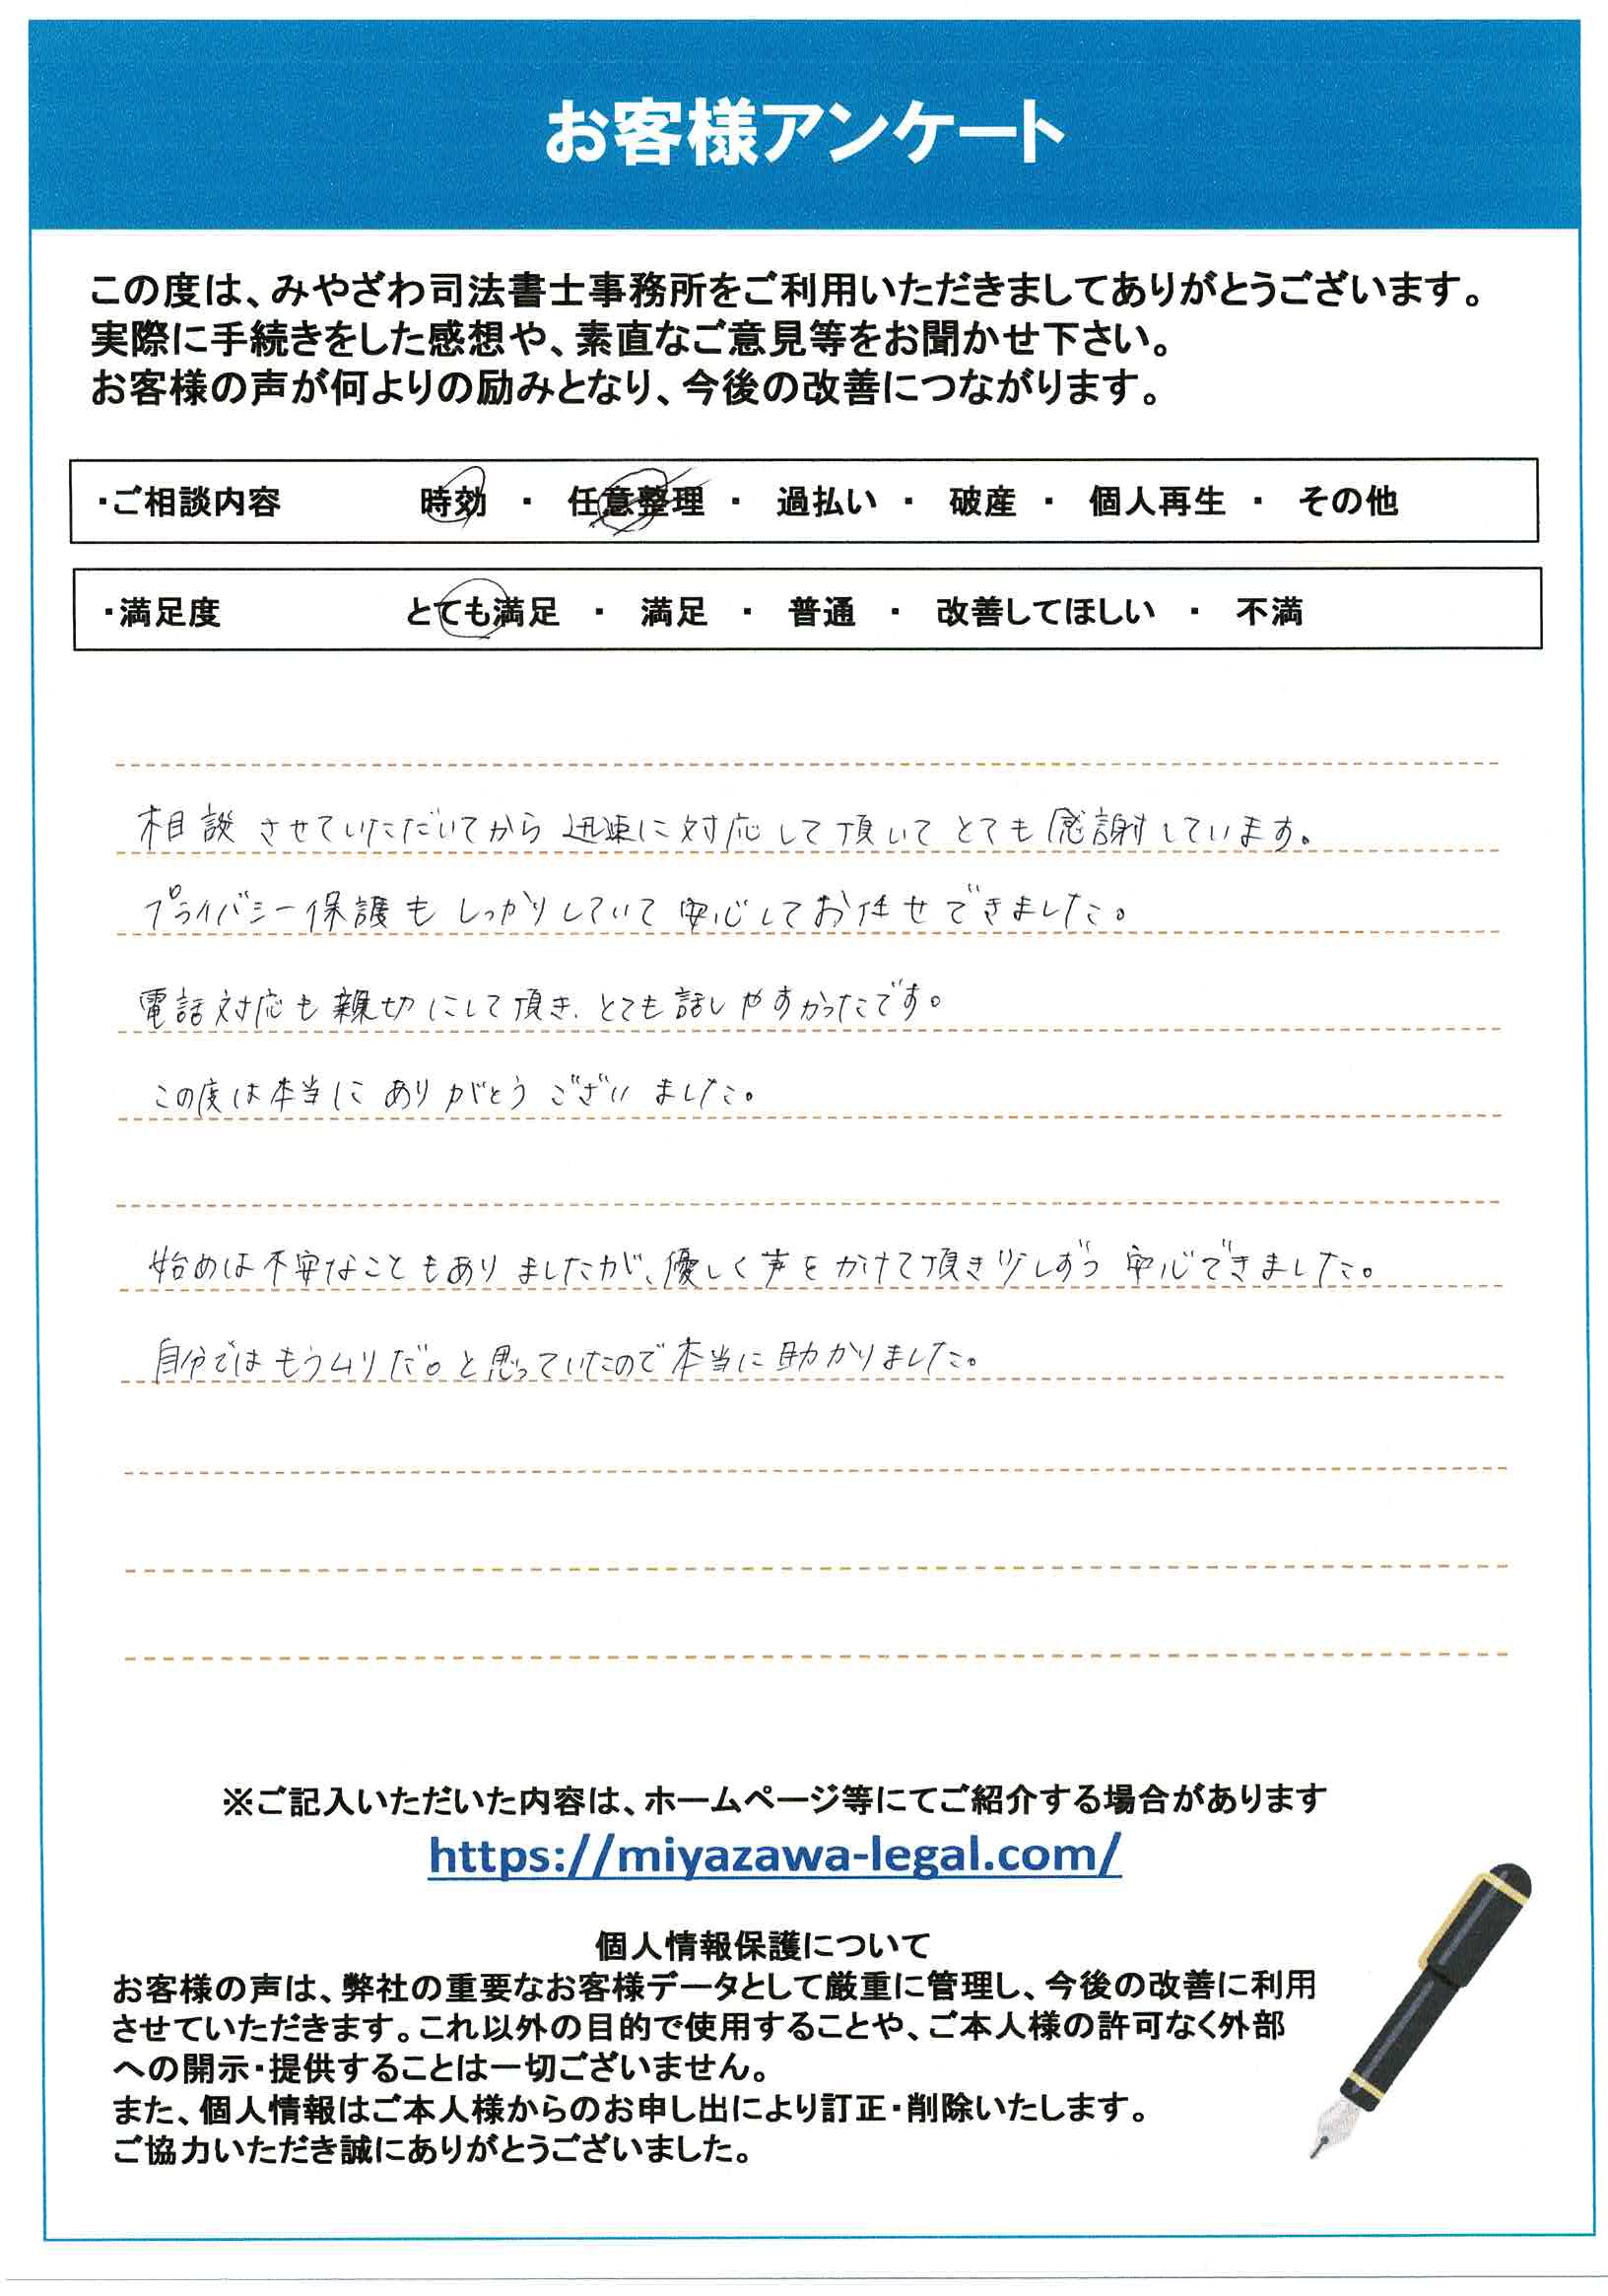 お客様アンケート
この度は、みやざわ司法書士事務所をご利用いただきましてありがとうございます。
実際に手続きをした感想や、素直なご意見等をお聞かせ下さい。
お客様の声が何よりの励みとなり、今後の改善につながります。
・ご相談内容 時効 ・ 任意整理 ・ 過払い ・ 破産 ・ 個人再生 ・ その他
・満足度 とても満足 ・ 満足 ・ 普通 ・ 改善してほしい ・ 不満
相談させていただいてから迅速に対応して頂いてとても感謝しています。
プライバシー保護もしっかりしていて安心してお任せできました。
電話対応も親切にして頂き、とても話しやすかったです。
この度は本当にありがとうございました。
始めは不安なこともありましたが、優しく声をかけて頂き少しずつ安心できました。
自分ではもうムリだ。と思っていたので本当に助かりました。
※ご記入いただいた内容は、ホームページ等にてご紹介する場合があります
https://miyazawa-legal.com/
個人情報保護について
お客様の声は、弊社の重要なお客様データとして厳重に管理し、今後の改善に利用
させていただきます。これ以外の目的で使用することや、ご本人様の許可なく外部
への開示・提供することは一切ございません。
また、個人情報はご本人様からのお申し出により訂正・削除いたします。
ご協力いただき誠にありがとうございました。